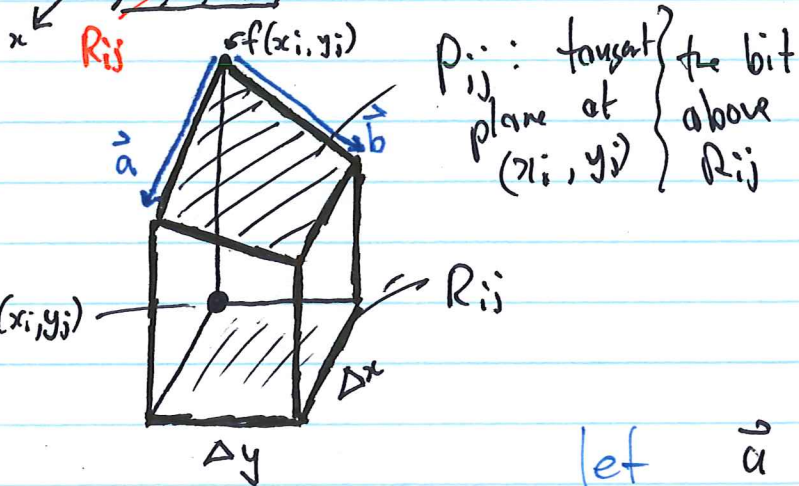 x
Rij
f(xi, yj)
Pij : tangent
plane at
(xi, yj)
the bit
above
Rij
a
b
(xi, yj)
Rij
Δx
Δy
let a